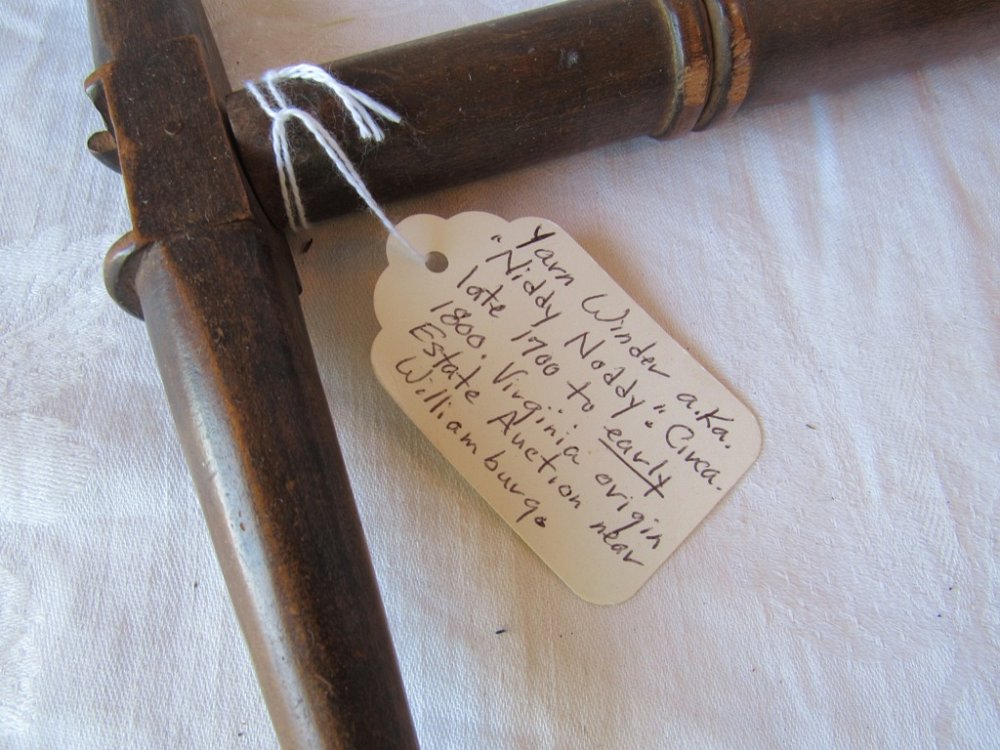 Yarn Winder a.ka.
"Niddy Noddy". Circa.
late 1700 to early
1800. Virginia origin
Estate Auction near
Williamburg.